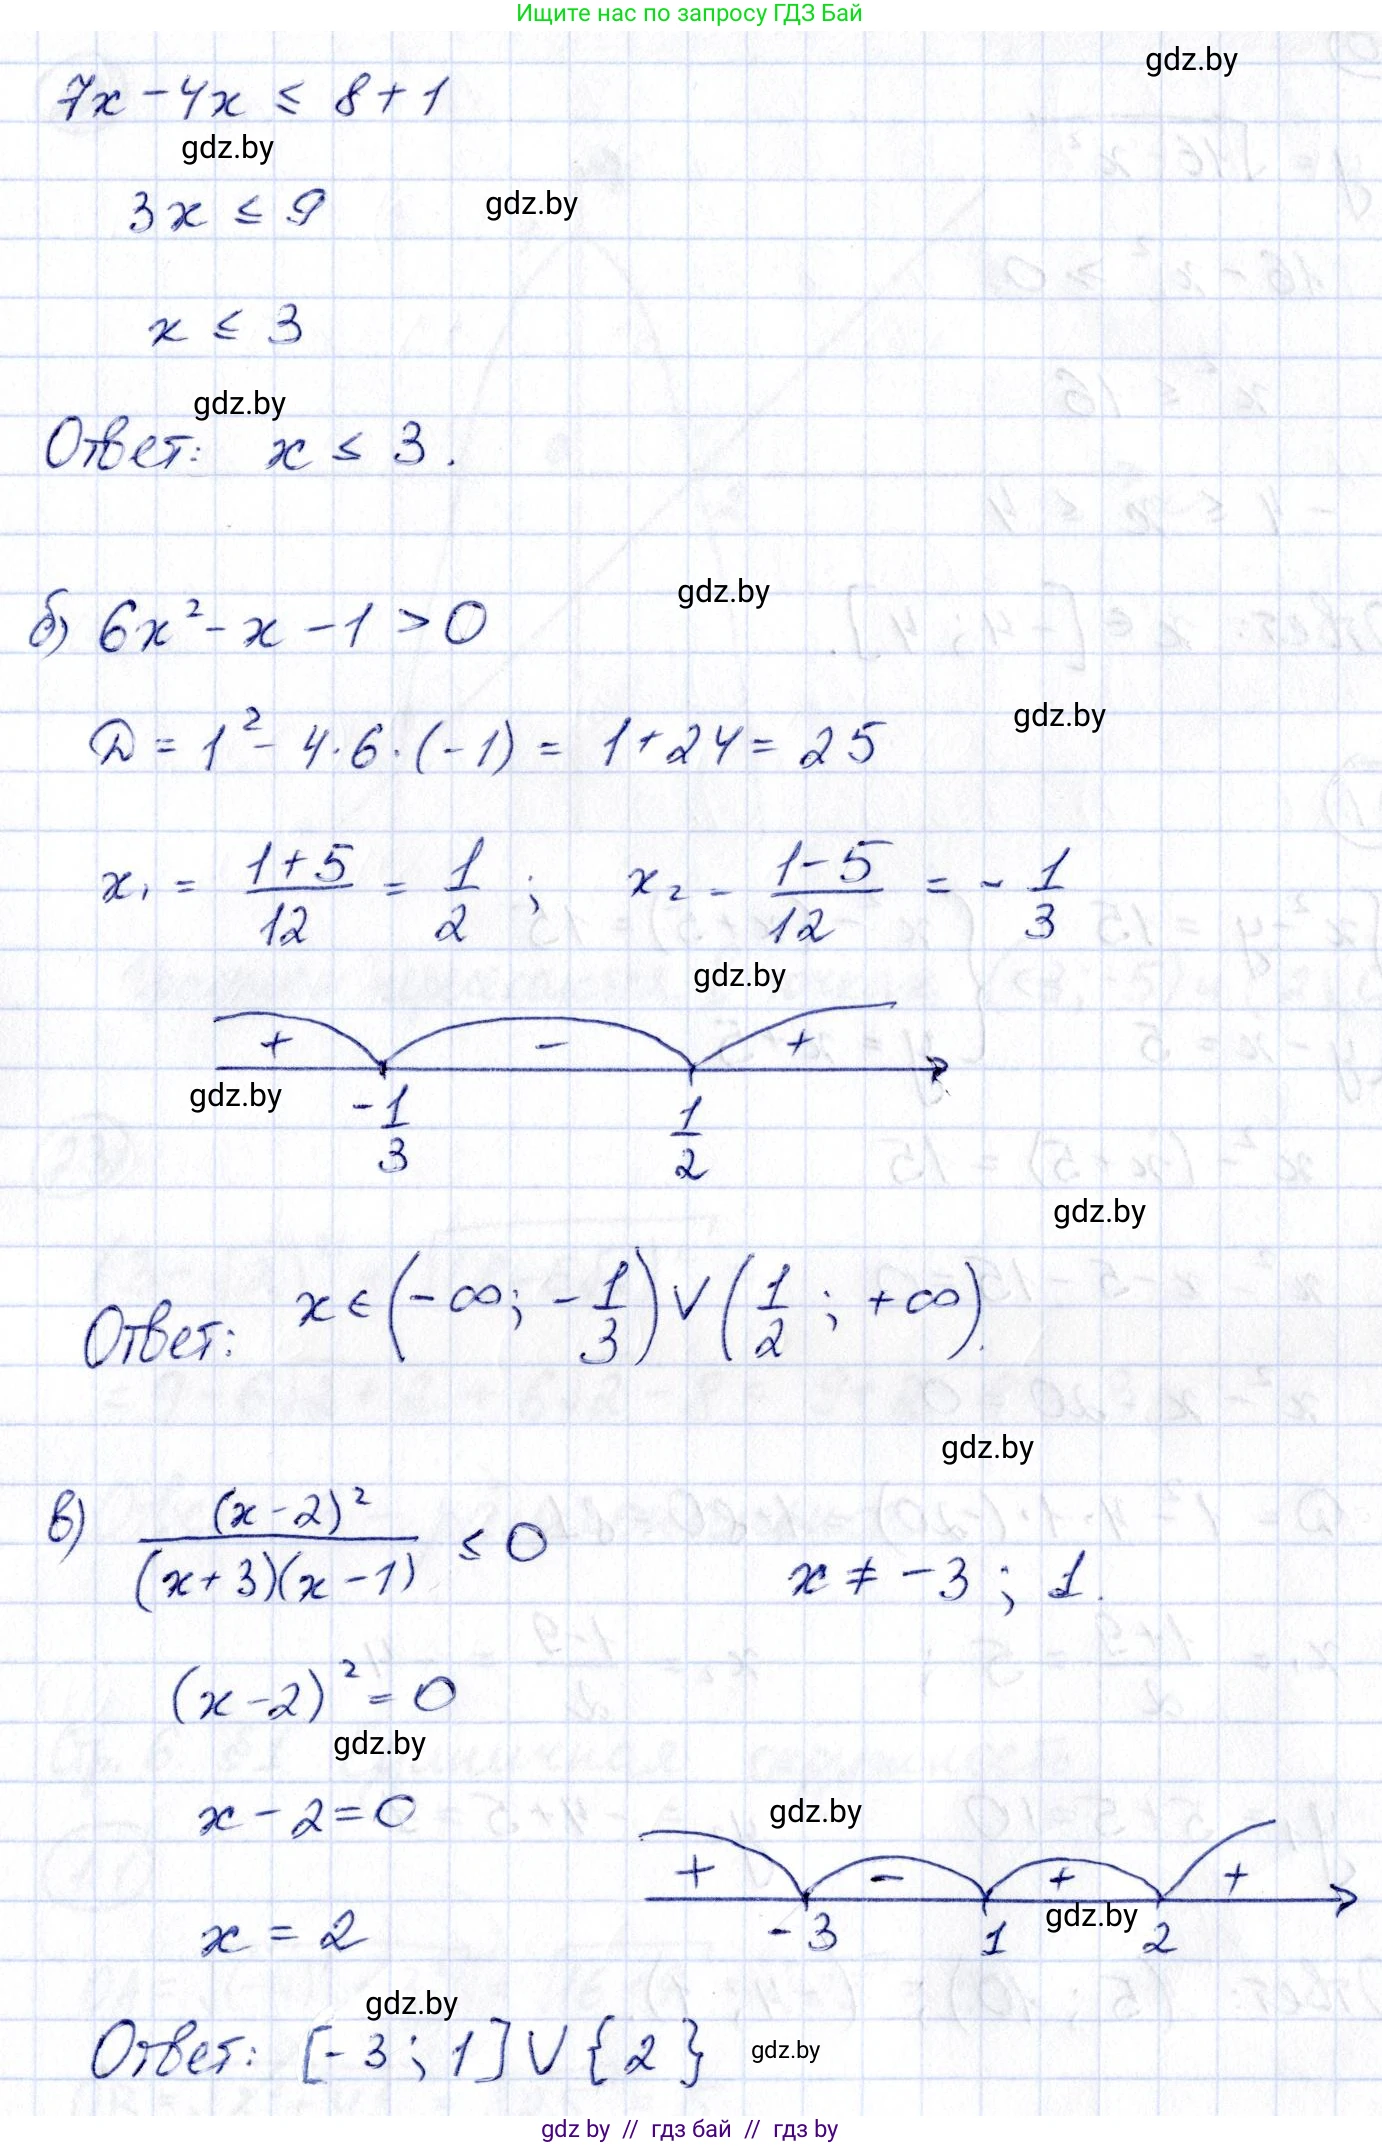 Ищите нас по запросу ГДЗ Бай
gdz.by
7x - 4x ≤ 8 + 1
gdz.by
3x ≤ 9
gdz.by
x ≤ 3
gdz.by
Ответ: x ≤ 3.
gdz.by
б) 6x² - x - 1 > 0
gdz.by
Д = 1² - 4·6·(-1) = 1 + 24 = 25
x₁ = (1+5)/12 = 1/2 ; x₂ = (1-5)/12 = -1/3
gdz.by
+ - +
gdz.by
-1/3 1/2
gdz.by
Ответ: x ∈ (-∞; -1/3) ∨ (1/2 ; +∞).
gdz.by
в) (x-2)²/((x+3)(x-1)) ≤ 0 x ≠ -3 ; 1.
(x-2)² = 0
gdz.by
x - 2 = 0
gdz.by
+ - + +
gdz.by
-3 1 2
x = 2
gdz.by
Ответ: [-3; 1] ∨ {2}
gdz.by
gdz by // гдз бай // гдз by